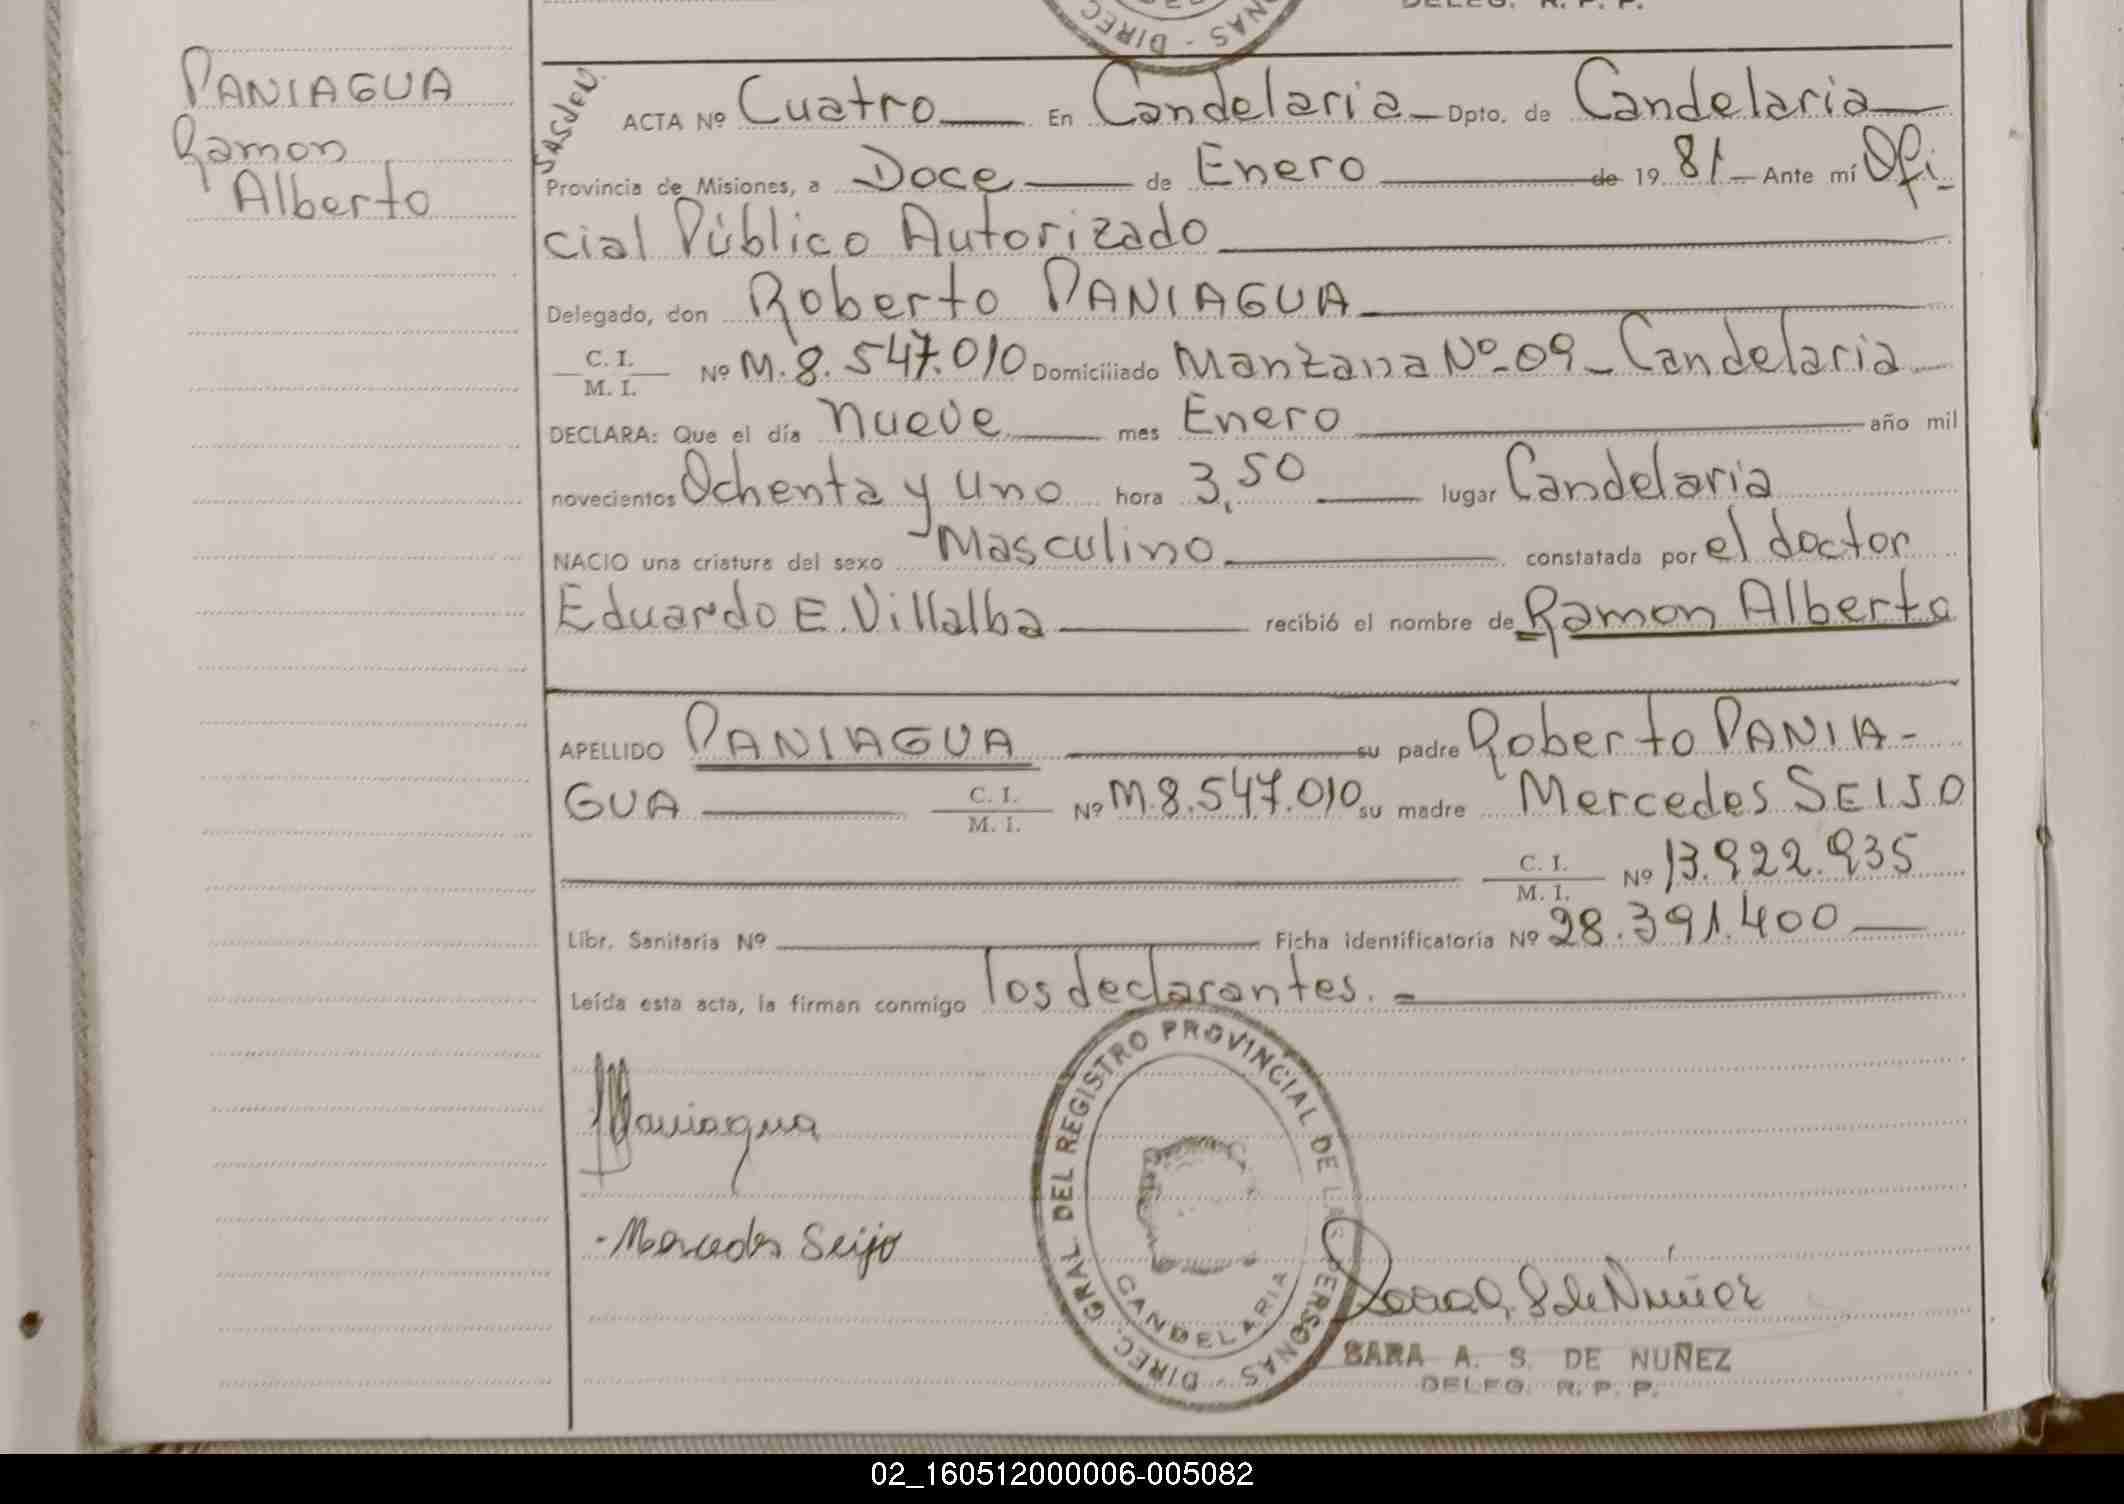 DELEG. R. P. P.
NAS - DIREC
PANIAGUA
Ramon
Alberto
ACTA Nº Cuatro En Candelaria Dpto. de Candelaria
Provincia de Misiones, a Doce de Enero de 1981 Ante mí Ofi
cial Público Autorizado
Delegado, don Roberto PANIAGUA
C. I.
M. I. Nº M. 8. 547.010 Domiciliado Manzana Nº 09 - Candelaria
DECLARA: Que el día nueve mes Enero año mil
novecientos Ochenta y uno hora 3,50 lugar Candelaria
NACIO una criatura del sexo Masculino constatada por el doctor
Eduardo E. Villalba recibió el nombre de Ramon Alberto
APELLIDO PANIAGUA su padre Roberto PANIA-
GUA C. I. M. I. Nº M. 8. 547.010 su madre Mercedes SEIJO
C. I. M. I. Nº 13.922.935
Libr. Sanitaria Nº Ficha identificatoria Nº 28.391.400
Leída esta acta, la firman conmigo los declarantes.
Paniagua
Mercedes Seijo
DIREC. GRAL. DEL REGISTRO PROVINCIAL DE LAS PERSONAS -
CANDELARIA
Sara A. S de Núñez
SARA A. S. DE NUÑEZ
DELEG. R. P. P.
02_160512000006-005082